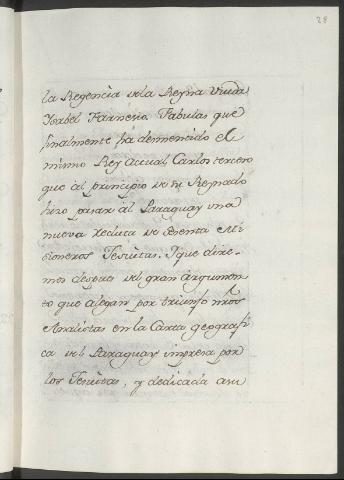 28
la Regencia de la Reyna Viuda
Isabel Farnesio. Fabulas que
finalmente ha desmentido el
mismo Rey actual Carlos tercero
que al principio de su Reynado
hizo pasar al Paraguay una
nueva recluta de sesenta Mi
sioneros Jesuitas. Y que dire-
mos despues del gran argumen
to que alegan por triunfo nros
Analistas en la Carta geografi
ca del Paraguay impresa por
los Jesuitas, y dedicada a su